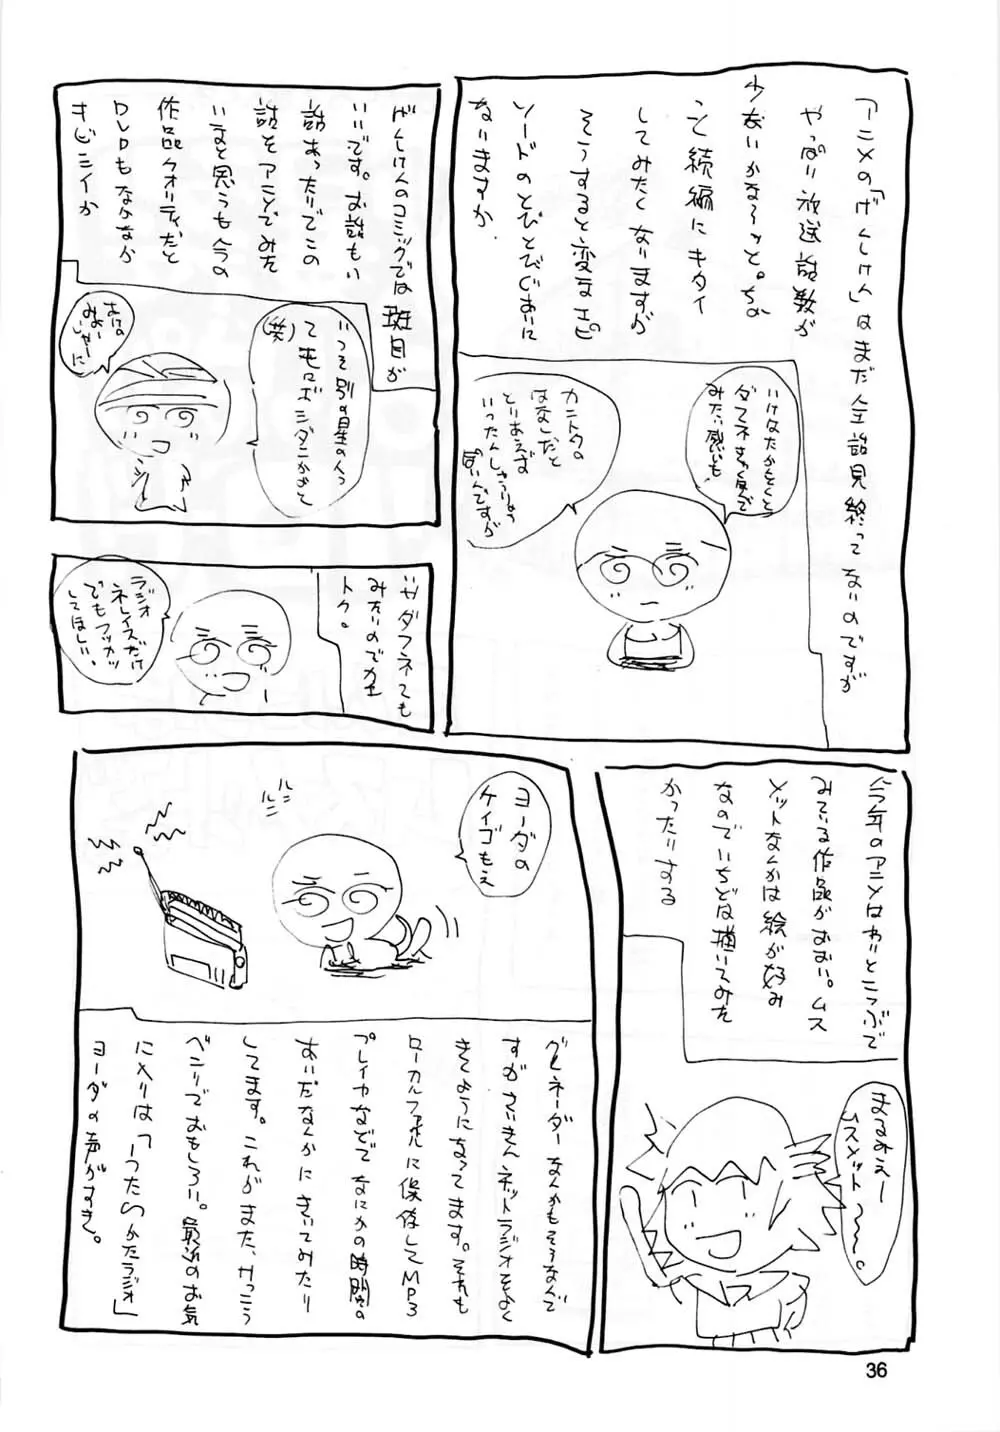 アニメの「げんしけん」はまだ全話見終ってないのですが
やっぱり放送話数が
少ないかな〜ッと。ちょ
こっと続編にキタイ
してみたくなりますが
そうすると変なエピ
ソードのとびとびぐあいに
ないますか
ダメネ
みたい感いも
カントクの
はなしだと
とりあえず
いったんしゅうりょう
ぽいんですが
げんしけんのコミックでは斑目が
いいです。お話もい
話あったりでこの
話をアニメでみた
いなと思うも今の
作品クオリティだと
DVDもなかなか
キビシイか
いっそ別の星の人っ
て
(笑)
いやダフネても
みたいのでカン
トク。
ラジオ
ネレイスだけ
でもフッカツ
してほしい。
今年のアニメはわりとこつぶで
みている作品がおおい。ムス
メットなんかは絵が好み
なのでいちどは描いてみた
かったりする
まるみえー
ムスメット〜〜。
ヨーダの
ケイゴもえ
グレネーダーなんかもそうなんで
すがさいきんネットラジオをよく
きくようになってます。それも
ローカルファイルに保存してMP3
プレイヤなどでなにかの時間の
あいだなんかにきいてみたり
してます。これがまた、けっこう
ベンリでおもしろい。最近のお気
に入りは「うたいかたラジオ」
ヨーダの声がすき。
36